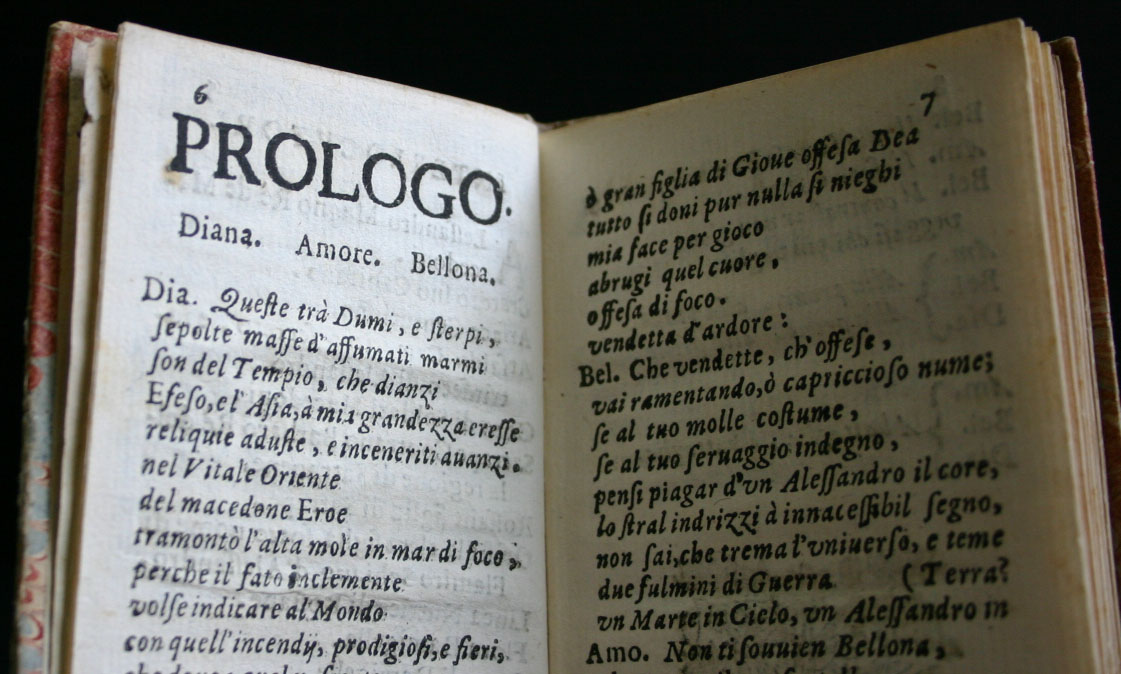 6
PROLOGO.
Diana. Amore. Bellona.
Dia. Queſte trà Dumi, e ſterpi,
ſepolte maſſe d'affumati marmi
ſon del Tempio, che dianzi
Efeſo, el' Aſia, à mia grandezza ereſſe
reliquie aduſte, e inceneriti auanzi.
nel Vitale Oriente
del macedone Eroe
tramontò l'alta mole in mar di foco,
perche il fato inclemente
volſe indicare al Mondo
con quell' incendij, prodigioſi, e fieri,
7
ò gran figlia di Gioue offeſa Dea
tutto ſi doni pur nulla ſi nieghi
mia face per gioco
abrugi quel cuore,
offeſa di foco.
vendetta d'ardore:
Bel. Che vendette, ch' offeſe,
vai ramentando, ò capriccioſo nume;
ſe al tuo molle coſtume,
ſe al tuo ſeruaggio indegno,
penſi piagar d'vn Aleſſandro il core,
lo ſtral indrizzi à innaceſſibil ſegno,
non ſai, che trema l'vniuerſo, e teme
due fulmini di Guerra (Terra?
vn Marte in Cielo, vn Aleſſandro in
Amo. Non ti ſouuien Bellona,